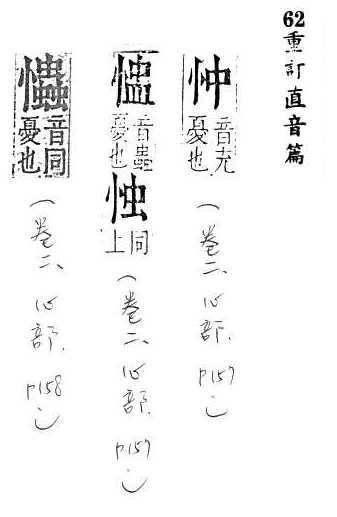 62重訂直音篇
忡 音充憂也
(卷二、心部. P157)
𢥞 音蟲憂也
㤝 同上
(卷二、心部. P157)
爞 音同憂也
(卷二、心部. P158)